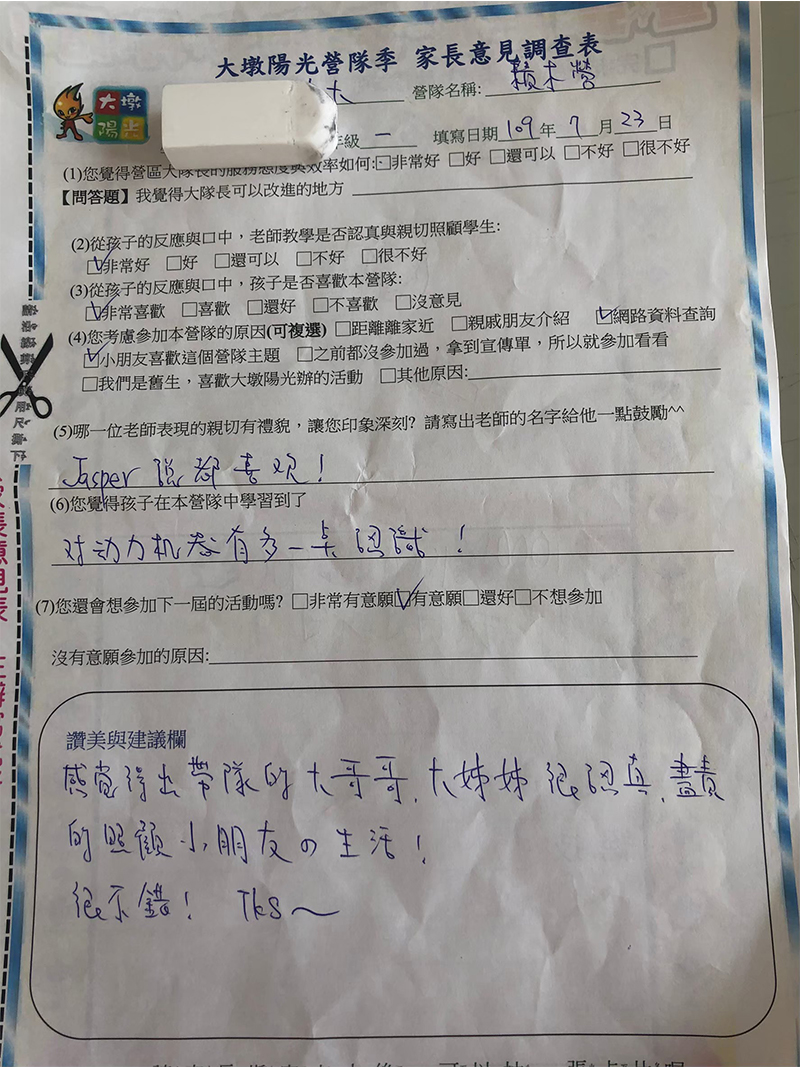 大墩陽光營隊季 家長意見調查表
大墩
陽光
營隊名稱: 積木營
年級 一 填寫日期 109 年 7 月 23 日
(1)您覺得營區大隊長的服務態度與效率如何:□非常好 □好 □還可以 □不好 □很不好
【問答題】我覺得大隊長可以改進的地方
(2)從孩子的反應與口中，老師教學是否認真與親切照顧學生:
☑非常好 □好 □還可以 □不好 □很不好
(3)從孩子的反應與口中，孩子是否喜歡本營隊:
☑非常喜歡 □喜歡 □還好 □不喜歡 □沒意見
(4)您考慮參加本營隊的原因(可複選) □距離離家近 □親戚朋友介紹 ☑網路資料查詢
☑小朋友喜歡這個營隊主題 □之前都沒參加過，拿到宣傳單，所以就參加看看
□我們是舊生，喜歡大墩陽光辦的活動 □其他原因:
(5)哪一位老師表現的親切有禮貌，讓您印象深刻? 請寫出老師的名字給他一點鼓勵^^
Jasper 說都喜欢！
(6)您覺得孩子在本營隊中學習到了
对动力机器有多一点認識！
(7)您還會想參加下一屆的活動嗎? □非常有意願☑有意願□還好□不想參加
沒有意願參加的原因:
讚美與建議欄
感覺得出帶隊的大哥哥、大姊姊很認真、盡責
的照顧小朋友の生活！
很不錯！ Tks～